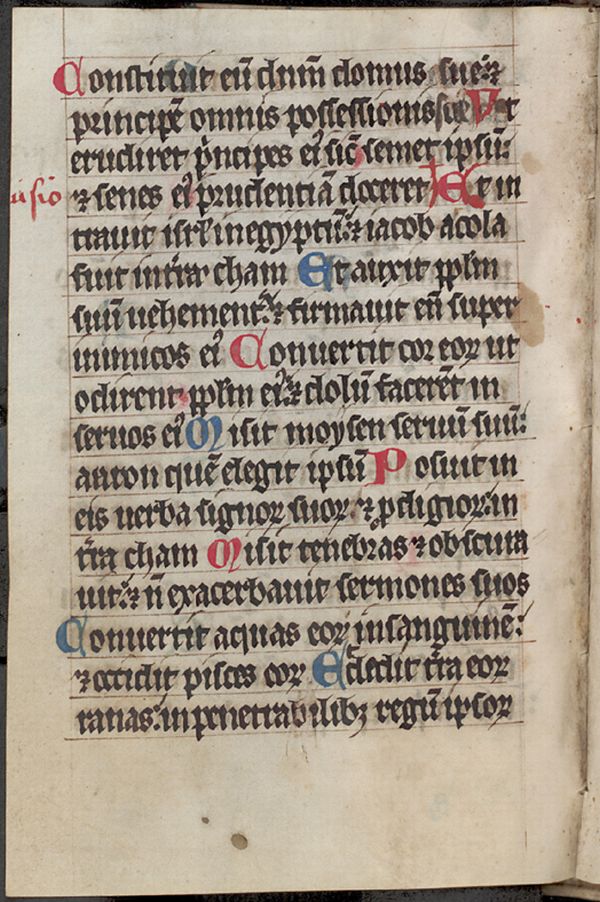 Constituit eū dnm̄ domus sue: ⁊
principē omnis possessionis sue Vt
erudiret p̄ncipes eiꝰ sic̄ semet ipsū:
⁊ senes eiꝰ prudentiā doceret Et in
trauit isrl̄ in egyptū: ⁊ iacob acola
fuit in tr̄a cham Et auxit ppl̄m
suū uehement̄: ⁊ firmauit eū super
inimicos eiꝰ Conuertit cor eoꝝ ut
odirent ppl̄m eiꝰ: ⁊ dolū facerēt in
seruos eiꝰ Misit moysen seruū suū:
aaron quē elegit ipsū Posuit in
eis uerba signoꝝ suoꝝ: ⁊ ꝓdigioꝝ: in
tr̄a cham Misit tenebras ⁊ obscura
uit: ⁊ n̄ exacerbauit sermones suos
Conuertit aquas eoꝝ in sanguinē:
⁊ occidit pisces eoꝝ Edidit tr̄a eoꝝ
ranas: in penetrabilibꝫ regū ipsoꝝ